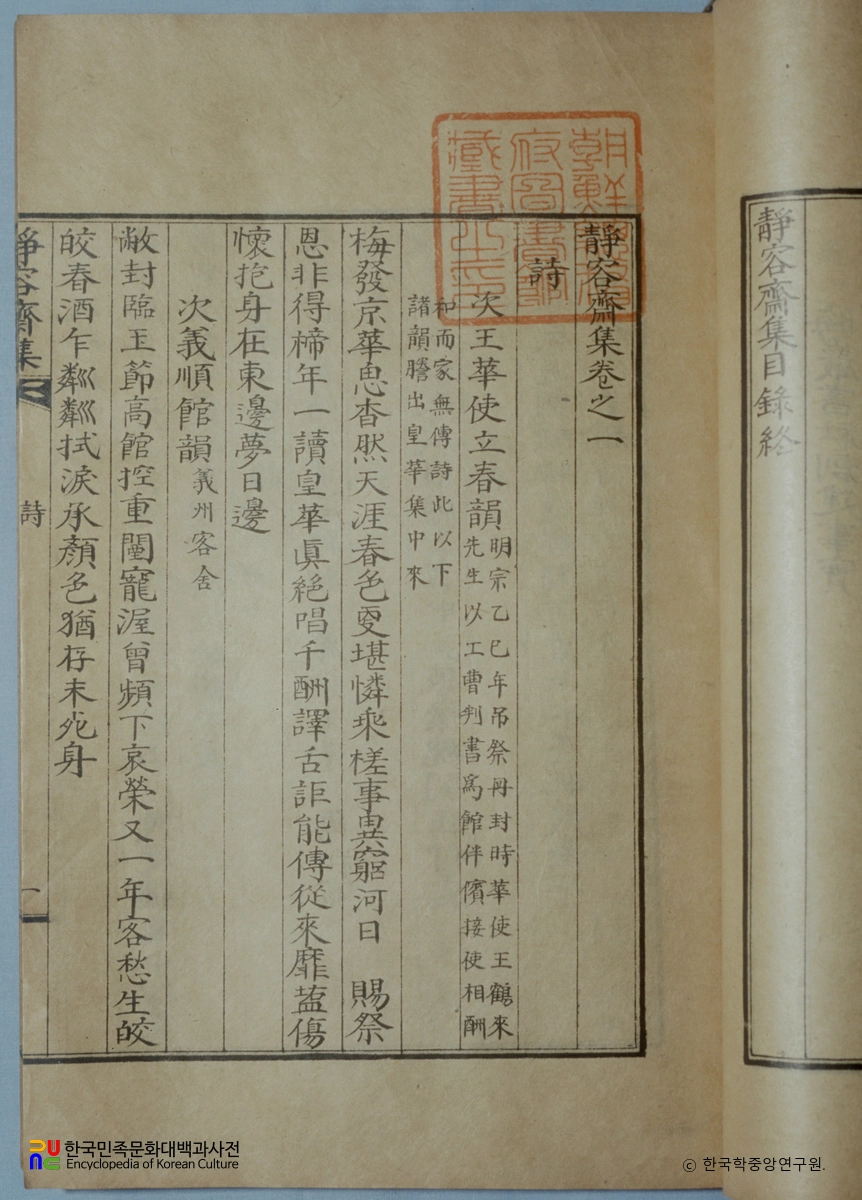 靜容齋集目錄終
靜容齋集卷之一
詩
次王華使立春韻 明宗乙巳年吊祭冊封時華使王鶴來
先生以工曹判書爲館伴儐接使相酬
和而家無傳詩此以下
諸韻謄出皇華集中來
梅發京華思杳然天涯春色更堪憐乘槎事異窮河日 賜祭
恩非得楴年一讀皇華眞絶唱千酬譯舌詎能傳從來靡盬傷
懷抱身在東邊夢日邊
次義順館韻 義州客舍
敝封臨玉節高館控重闉寵渥曾頻下哀榮又一年客愁生皎
皎春酒乍粼粼拭淚承顏色猶存未死身
靜容齋集
詩
一
朝鮮
府圖書
藏書之印
한국민족문화대백과사전
Encyclopedia of Korean Culture
ⓒ 한국학중앙연구원.